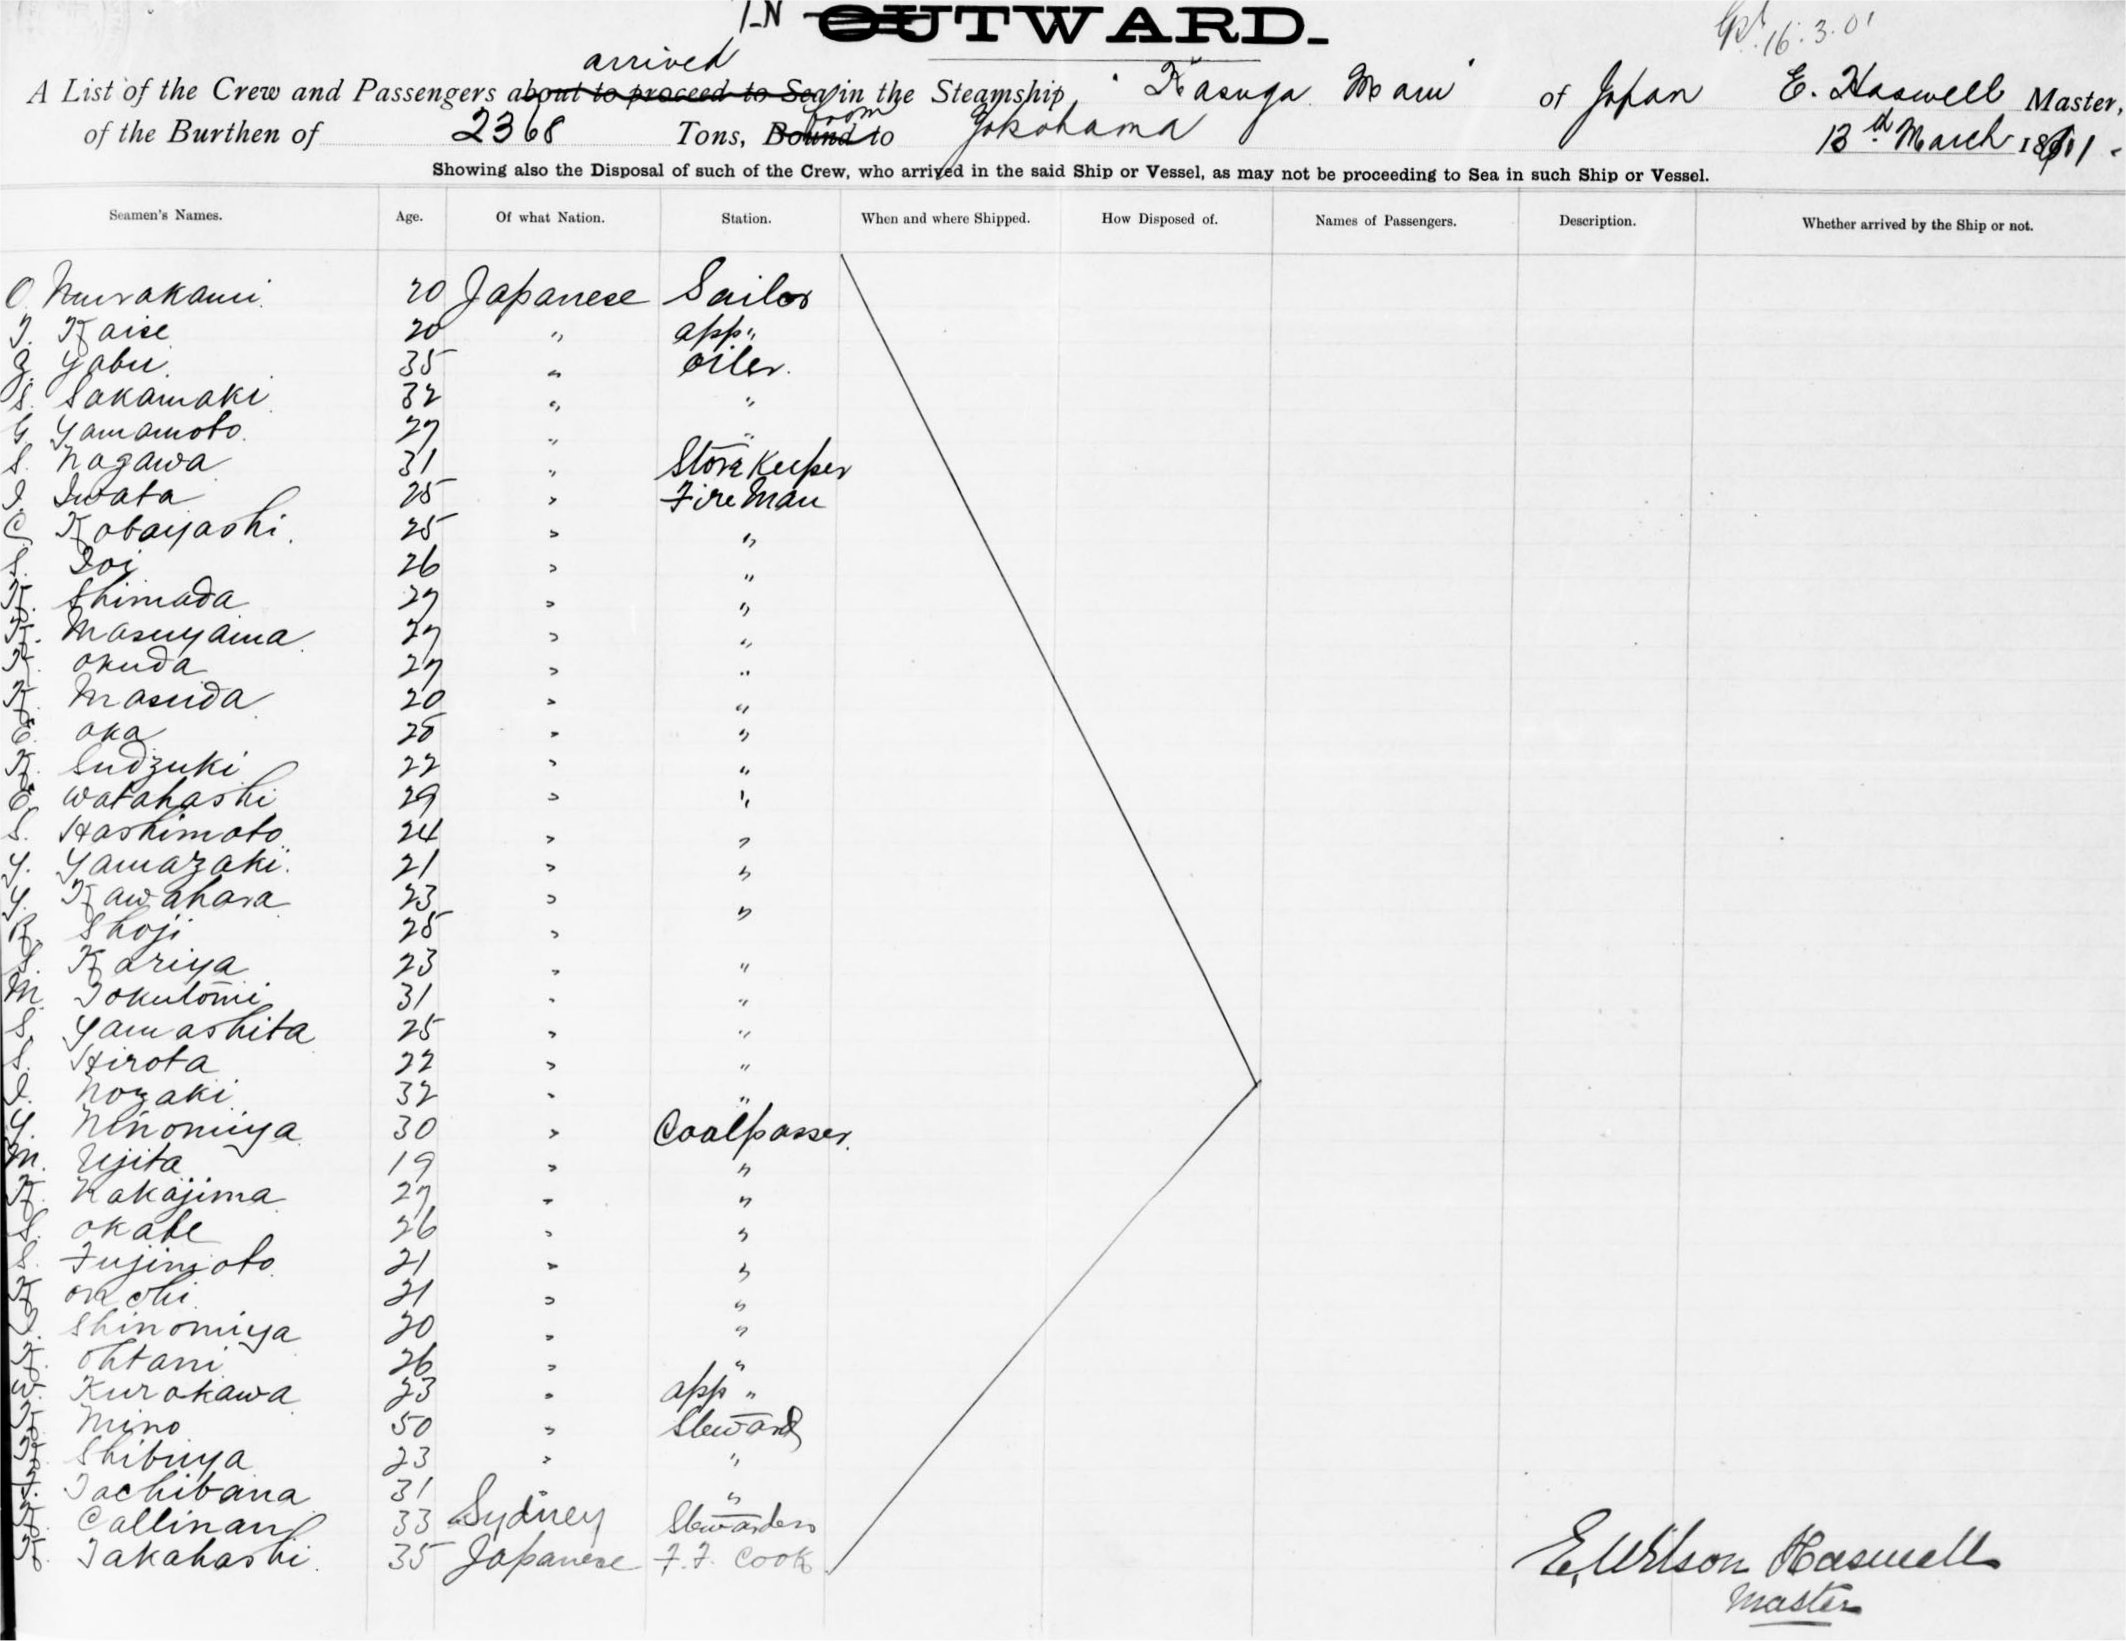 IN OUTWARD.
16.3.01
arrived
A List of the Crew and Passengers about to proceed to Sea in the Steamship, "Kasuga Maru" of Japan E. Haswell Master,
from
of the Burthen of 2368 Tons, Bound to Yokohama 13th March 1901.
Showing also the Disposal of such of the Crew, who arrived in the said Ship or Vessel, as may not be proceeding to Sea in such Ship or Vessel.
Seamen's Names. Age. Of what Nation. Station. When and where Shipped. How Disposed of. Names of Passengers. Description. Whether arrived by the Ship or not.
O. Murakami 20 Japanese Sailor
T. Kaise 20 " app "
Z. Yabu 35 " Oiler
S. Sakamaki 32 " "
G. Yamamoto 27 " "
S. Nogawa 31 " Store Keeper
I. Iwata 25 " Fire Man
C. Kobayashi 25 " "
S. Doi 26 " "
K. Shimada 27 " "
K. Masuyama 27 " "
K. Okuda 27 " "
K. Masuda 20 " "
E. Oka 28 " "
K. Sudzuki 22 " "
E. Watahashi 29 " "
S. Hashimoto 24 " "
Y. Yamazaki 21 " "
Y. Kawahara 23 " "
R. Shoji 25 "
S. Kariya 23 " "
M. Tokutomi 31 " "
S. Yamashita 25 " "
S. Hirota 22 " "
I. Nozaki 32 " "
Y. Ninomiya 30 " Coalpasser
M. Ujita 19 " "
K. Nakajima 27 " "
S. Okabe 26 " "
S. Fujimoto 21 " "
K. Okochi 21 " "
I. Shinomiya 20 " "
K. Ohtani 26 " "
W. Kurokawa 23 " app "
K. Mino 50 " Steward
K. Shibuya 23 " "
T. Tachibana 31 " "
K. Callinan 33 Sydney Stewardess
K. Takahashi 35 Japanese F.F. Cook
E. Wilson Haswell
Master